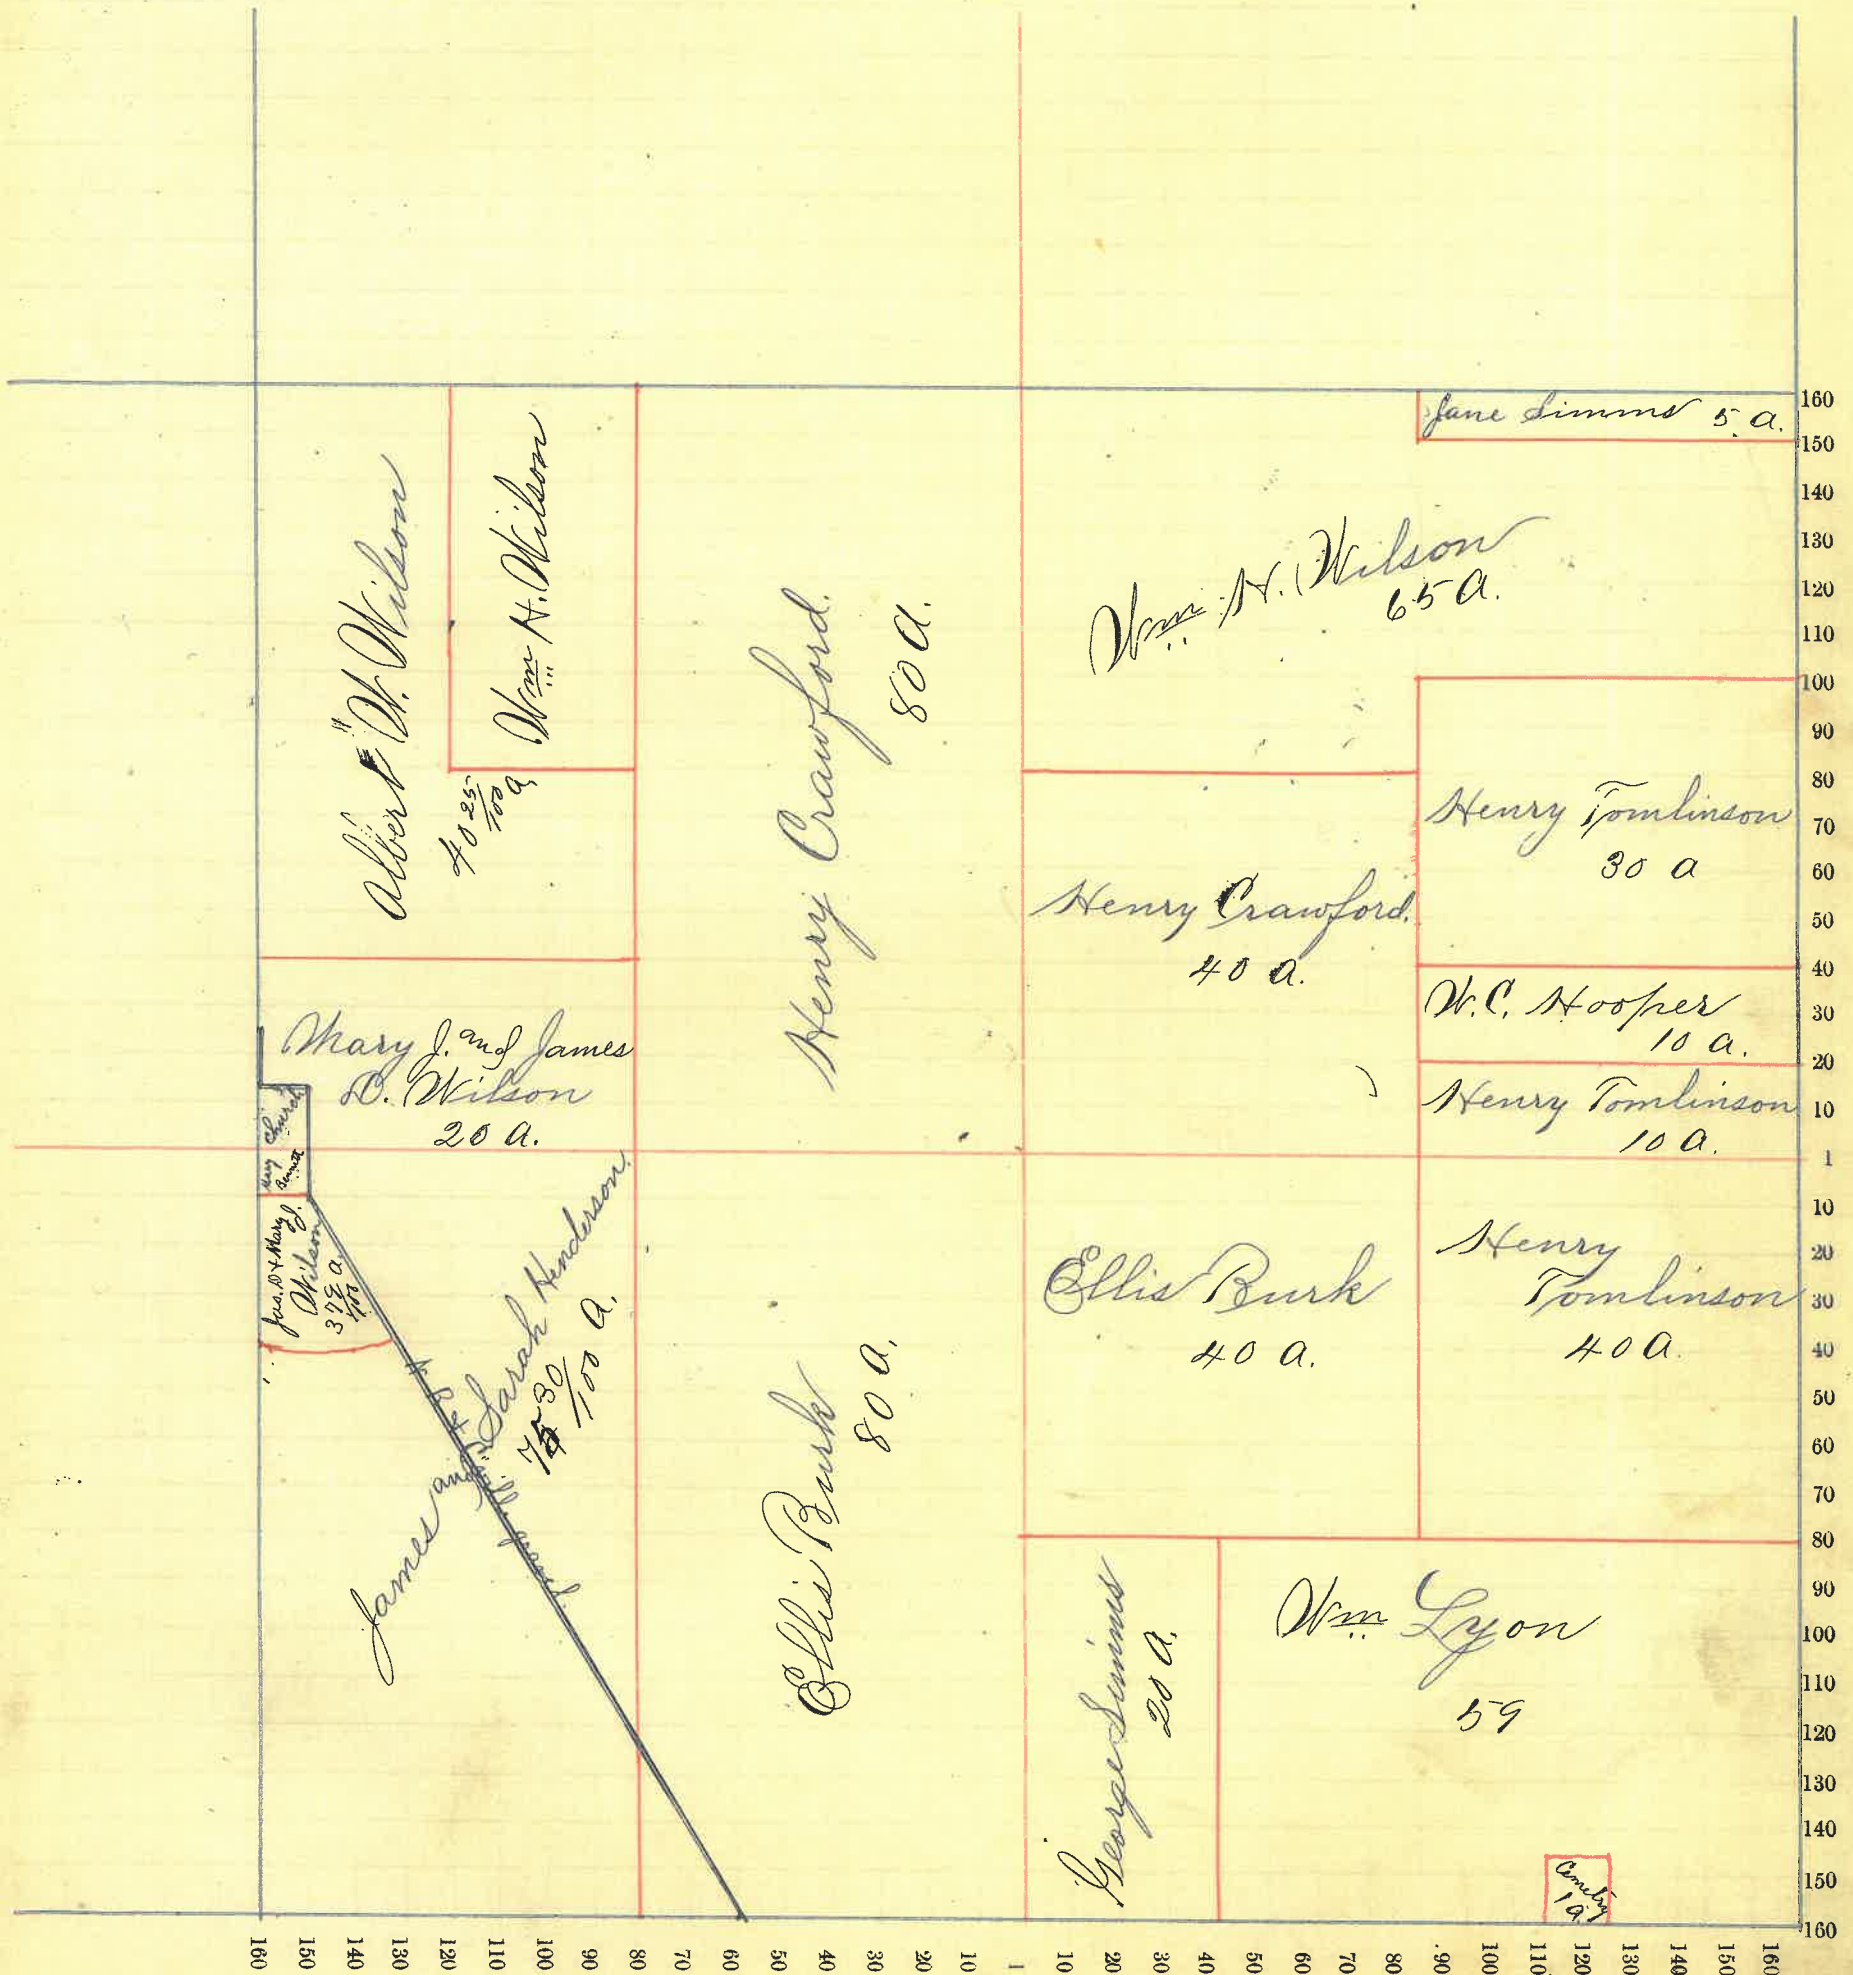 Jane Simms 5 a.
Albert W. Wilson
40 25/100 a
Wm H. Wilson
Henry Crawford.
80 a.
Wm H. Wilson
65 a.
Henry Tomlinson
30 a
Henry Crawford.
40 a.
W.C. Hooper
10 a.
Henry Tomlinson
10 a.
Mary J. and James
D. Wilson
20 a.
Church
Jas. D & Mary J.
Wilson
James and Sarah Henderson
75 30/100 a.
Ellis Burk
80 a.
Ellis Burk
40 a.
Henry
Tomlinson
40 a.
George Simms
20 a.
Wm Lyon
59
Cemetry
1 a
160
150
140
130
120
110
100
90
80
70
60
50
40
30
20
10
1
10
20
30
40
50
60
70
80
90
100
110
120
130
140
150
160
160 150 140 130 120 110 100 90 80 70 60 50 40 30 20 10 1 10 20 30 40 50 60 70 80 90 100 110 120 130 140 150 160